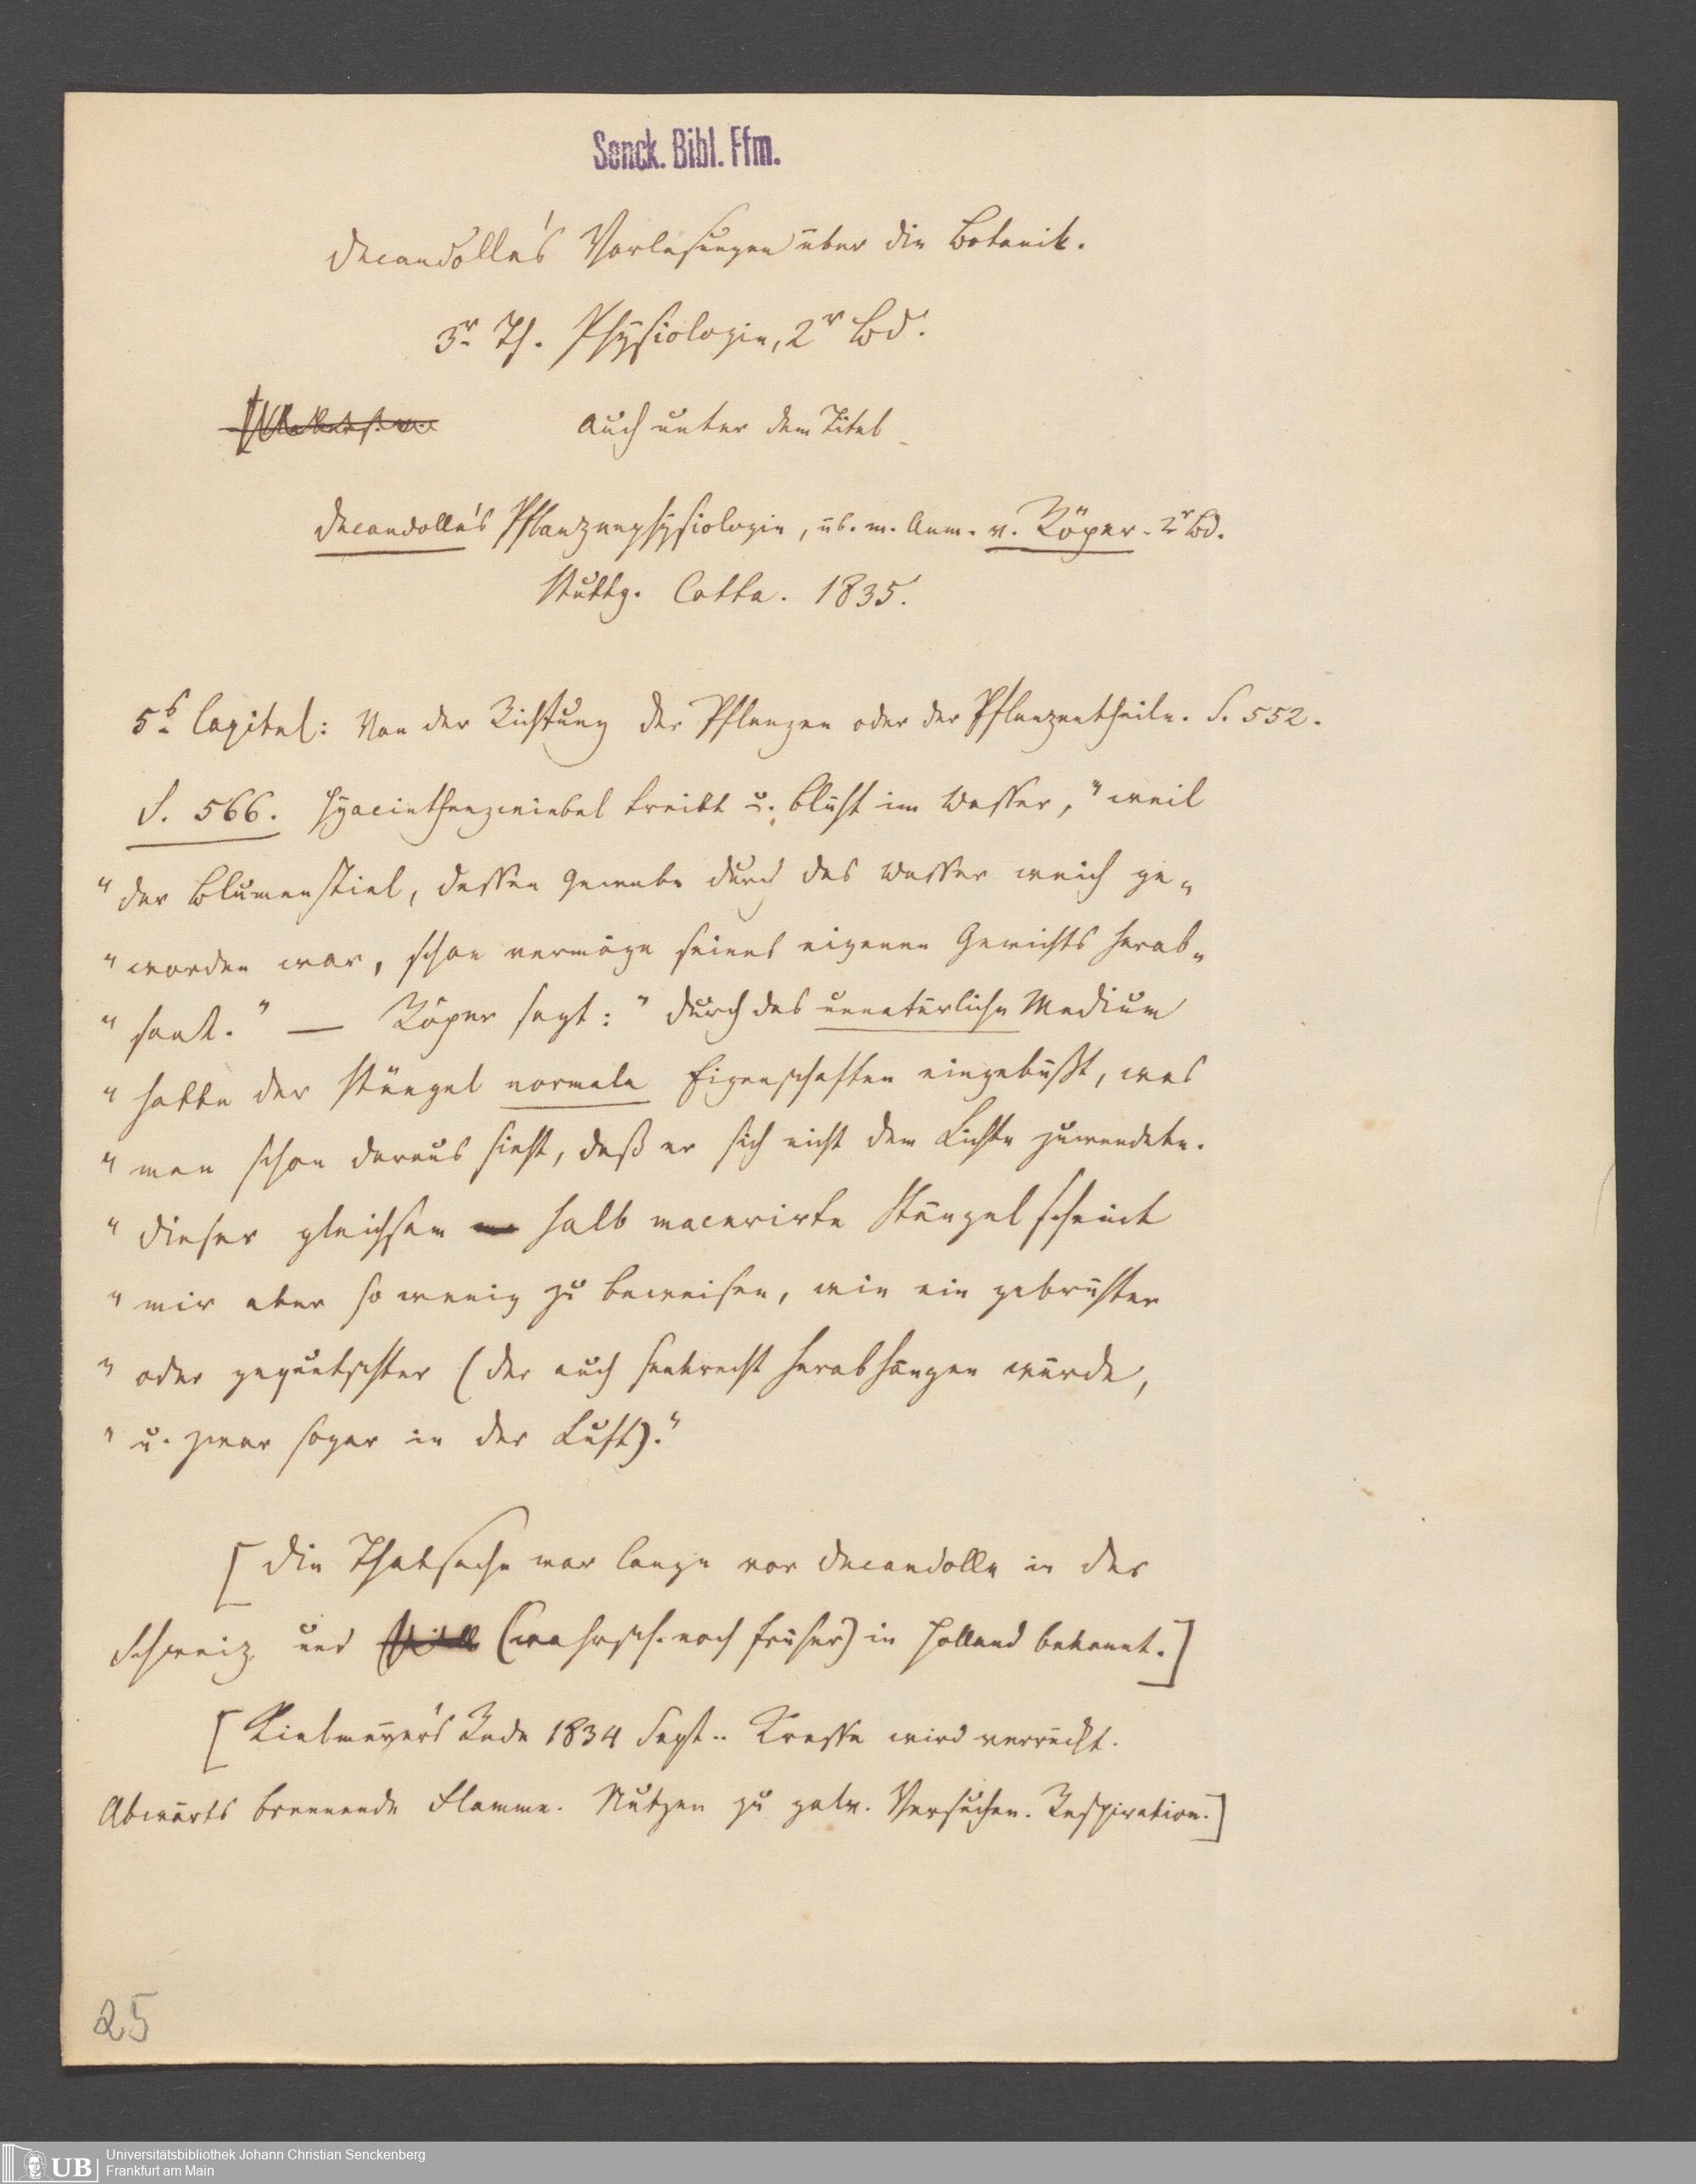 Senck. Bibl. Ffm.
Decandolle's Vorlesungen über die Botanik.
3r Th. Physiologie, 2r Bd.
Auch unter dem Titel
Decandolle's Pflanzenphysiologie, üb. m. Anm. v. Röper. 2r Bd.
Stuttg. Cotta. 1835.
5s Capitel: Von der Richtung der Pflanzen oder der Pflanzentheile. S. 552.
S. 566. Hyacinthenzwiebel treibt u. blüht im Wasser, "weil
"der Blumenstiel, dessen Gewebe durch das Wasser weich ge-
"worden war, schon vermöge seines eigenen Gewichts herab-
"sank." — Röper sagt: "durch das unnatürliche Medium
"hatte der Stängel normale Eigenschaften eingebüßt, was
"man schon daraus sieht, daß er sich nicht dem Lichte zuwendete.
"Dieser gleichsam halb macerirte Stängel scheint
"mir aber so wenig zu beweisen, wie ein gebrühter
"oder gequetschter (der auch senkrecht herabhängen würde,
"u. zwar sogar in der Luft)."
[Die Thatsache war lange vor Decandolle in der
Schweiz und (wahrsch. noch früher) in Holland bekannt.]
[Kielmeyer's Rede 1834 Sept.. Kresse wird verrückt.
Abwärts brennende Flamme. Nutzen zu galv. Versuchen. Respiration.]
25
UB
Universitätsbibliothek Johann Christian Senckenberg
Frankfurt am Main